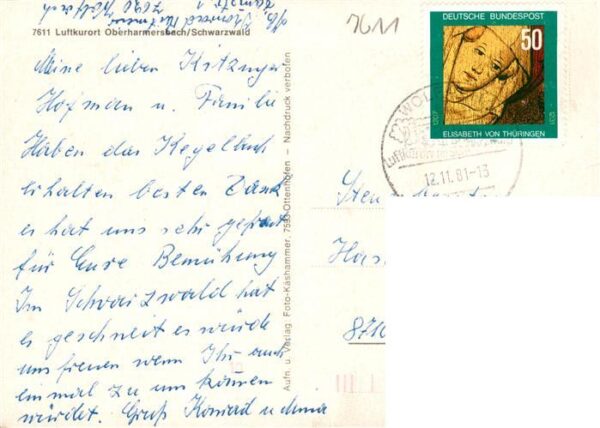 7611 Luftkurort Oberharmersbach/Schwarzwald
Meine lieben Kitzinger
Hofman u. Familie
Haben das Kegelbuch
erhalten besten Dank
es hat uns sehr gefreut
für Eure Bemühung
Im Schwarzwald hat
es geschneit es würde
uns freuen wenn Ihr auch
einmal zu uns kommen
würdet. Gruß Konrad u
Aufn. u. Verlag Foto-Käshammer, 7593 Ottenhöfen – Nachdruck verboten
7611
DEUTSCHE BUNDESPOST
50
ELISABETH VON THÜRINGEN
1207
1231
WOL
12.11.81-13
8710